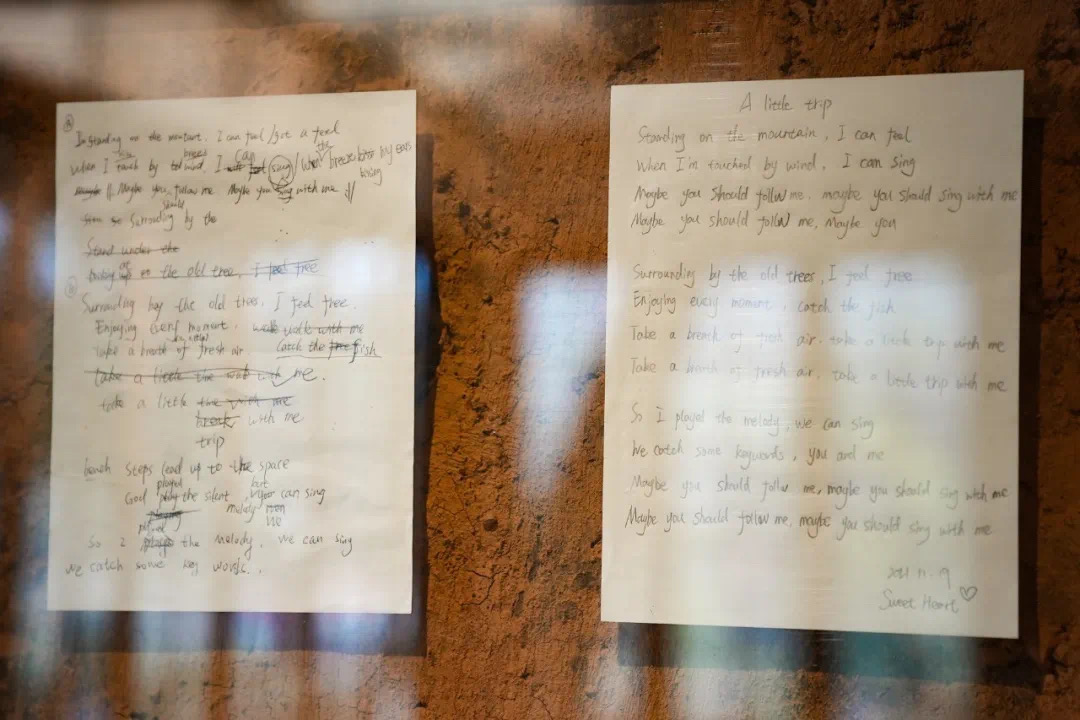 In standing on the mountant. I can feel / got a feel
breeze
can
When I touch by wind, I sing
by ears
Maybe you follow me Maybe you sing with me
should
Surrouding by the
Stand under the
on the old tree, I feel free
Surrouding by the old trees, I feel free.
Enjoying every moment. walk with me
Take a breath of fresh air. catch the free fish
take a little time walk with me.
take a little time with me
break with me
trip
Steps lead up to the space
played
but
God play the silent can sing
melody
men
we
played
So I the melody. we can sing
we catch some key words..
A little trip
Standing on the mountain, I can feel
When I'm touched by wind, I can sing
Maybe you should follow me, maybe you should sing with me
Maybe you should follow me, Maybe you
Surrounding by the old trees, I feel free
Enjoying every moment, catch the fish
Take a breath of fresh air, take a little trip with me
Take a breath of fresh air, take a little trip with me
So I played the melody, we can sing
We catch some keywords, you and me
Maybe you should follow me, maybe you should sing with me
Maybe you should follow me, maybe you should sing with me
2021.11.19
Sweet Heart ♡